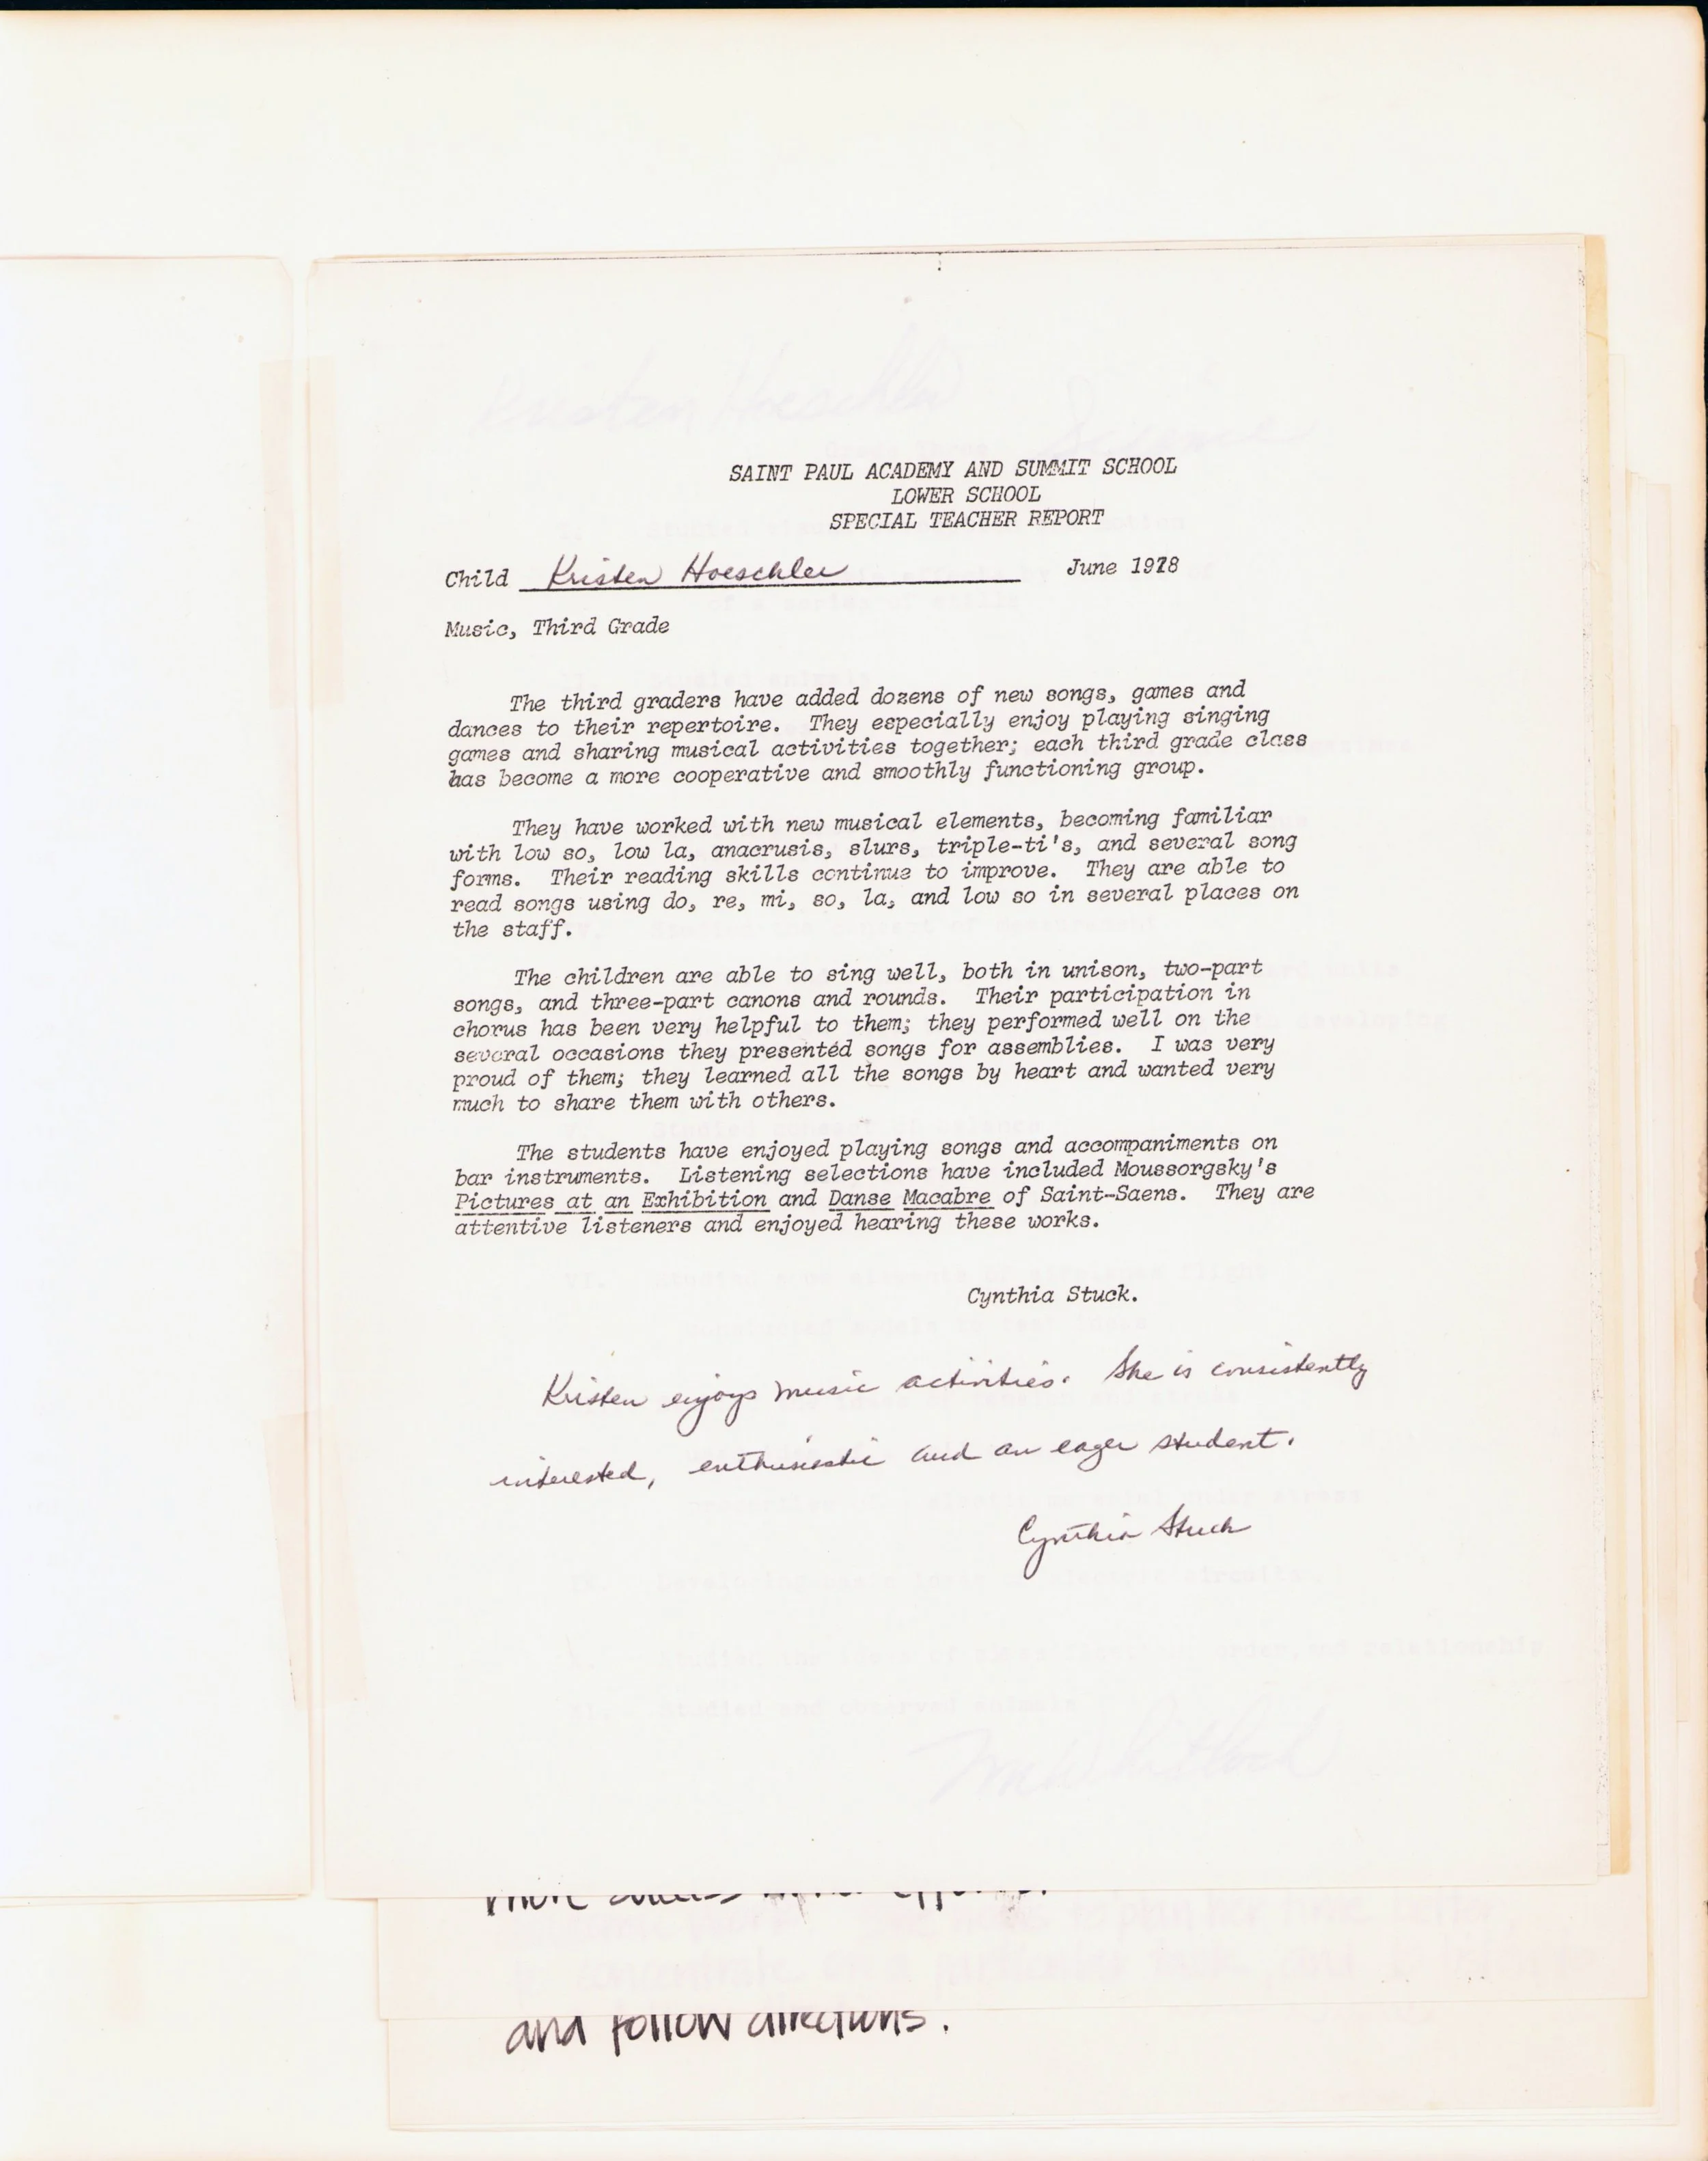 SAINT PAUL ACADEMY AND SUMMIT SCHOOL
LOWER SCHOOL
SPECIAL TEACHER REPORT
Child Kristen Hoeschler June 1978
Music, Third Grade
The third graders have added dozens of new songs, games and
dances to their repertoire. They especially enjoy playing singing
games and sharing musical activities together; each third grade class
has become a more cooperative and smoothly functioning group.
They have worked with new musical elements, becoming familiar
with low so, low la, anacrusis, slurs, triple-ti's, and several song
forms. Their reading skills continue to improve. They are able to
read songs using do, re, mi, so, la, and low so in several places on
the staff.
The children are able to sing well, both in unison, two-part
songs, and three-part canons and rounds. Their participation in
chorus has been very helpful to them; they performed well on the
several occasions they presented songs for assemblies. I was very
proud of them; they learned all the songs by heart and wanted very
much to share them with others.
The students have enjoyed playing songs and accompaniments on
bar instruments. Listening selections have included Moussorgsky's
Pictures at an Exhibition and Danse Macabre of Saint-Saens. They are
attentive listeners and enjoyed hearing these works.
Cynthia Stuck.
Kristen enjoys music activities. She is consistently
interested, enthusiastic and an eager student.
Cynthia Stuck
and follow directions.